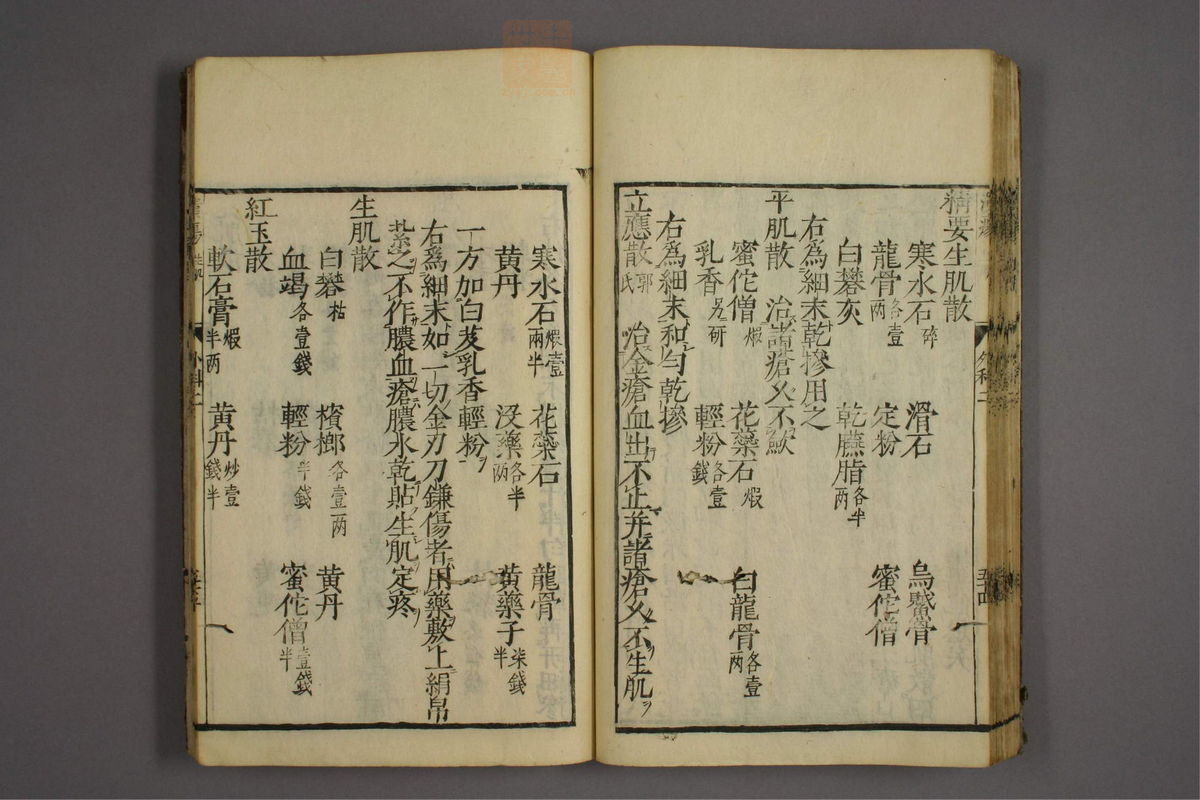 精要生肌散
寒水石碎　滑石　烏鰂骨
龍骨各壹兩　定粉　蜜佗僧
白礬灰　乾臙脂各半兩
右為細末乾摻用之
平肌散　治諸瘡久不歛
蜜佗僧煅　花蘂石煅　白龍骨各壹兩
乳香另研　輕粉各壹錢
右為細末和勻乾摻
立應散郭氏　治金瘡血出不止并諸瘡久不生肌
寒水石煅壹兩半　花蘂石　龍骨
黄丹　沒藥各半兩　黄藥子柒錢半
一方加白芨乳香輕粉
右為細末如一切金刃刀鎌傷者用藥敷上絹帛
紮之不作膿血瘡膿水乾貼生肌定疼
生肌散
白礬枯　檳榔各壹兩　黄丹
血竭各壹錢　輕粉半錢　蜜佗僧壹錢半
紅玉散
軟石膏煅半兩　黄丹炒壹錢半